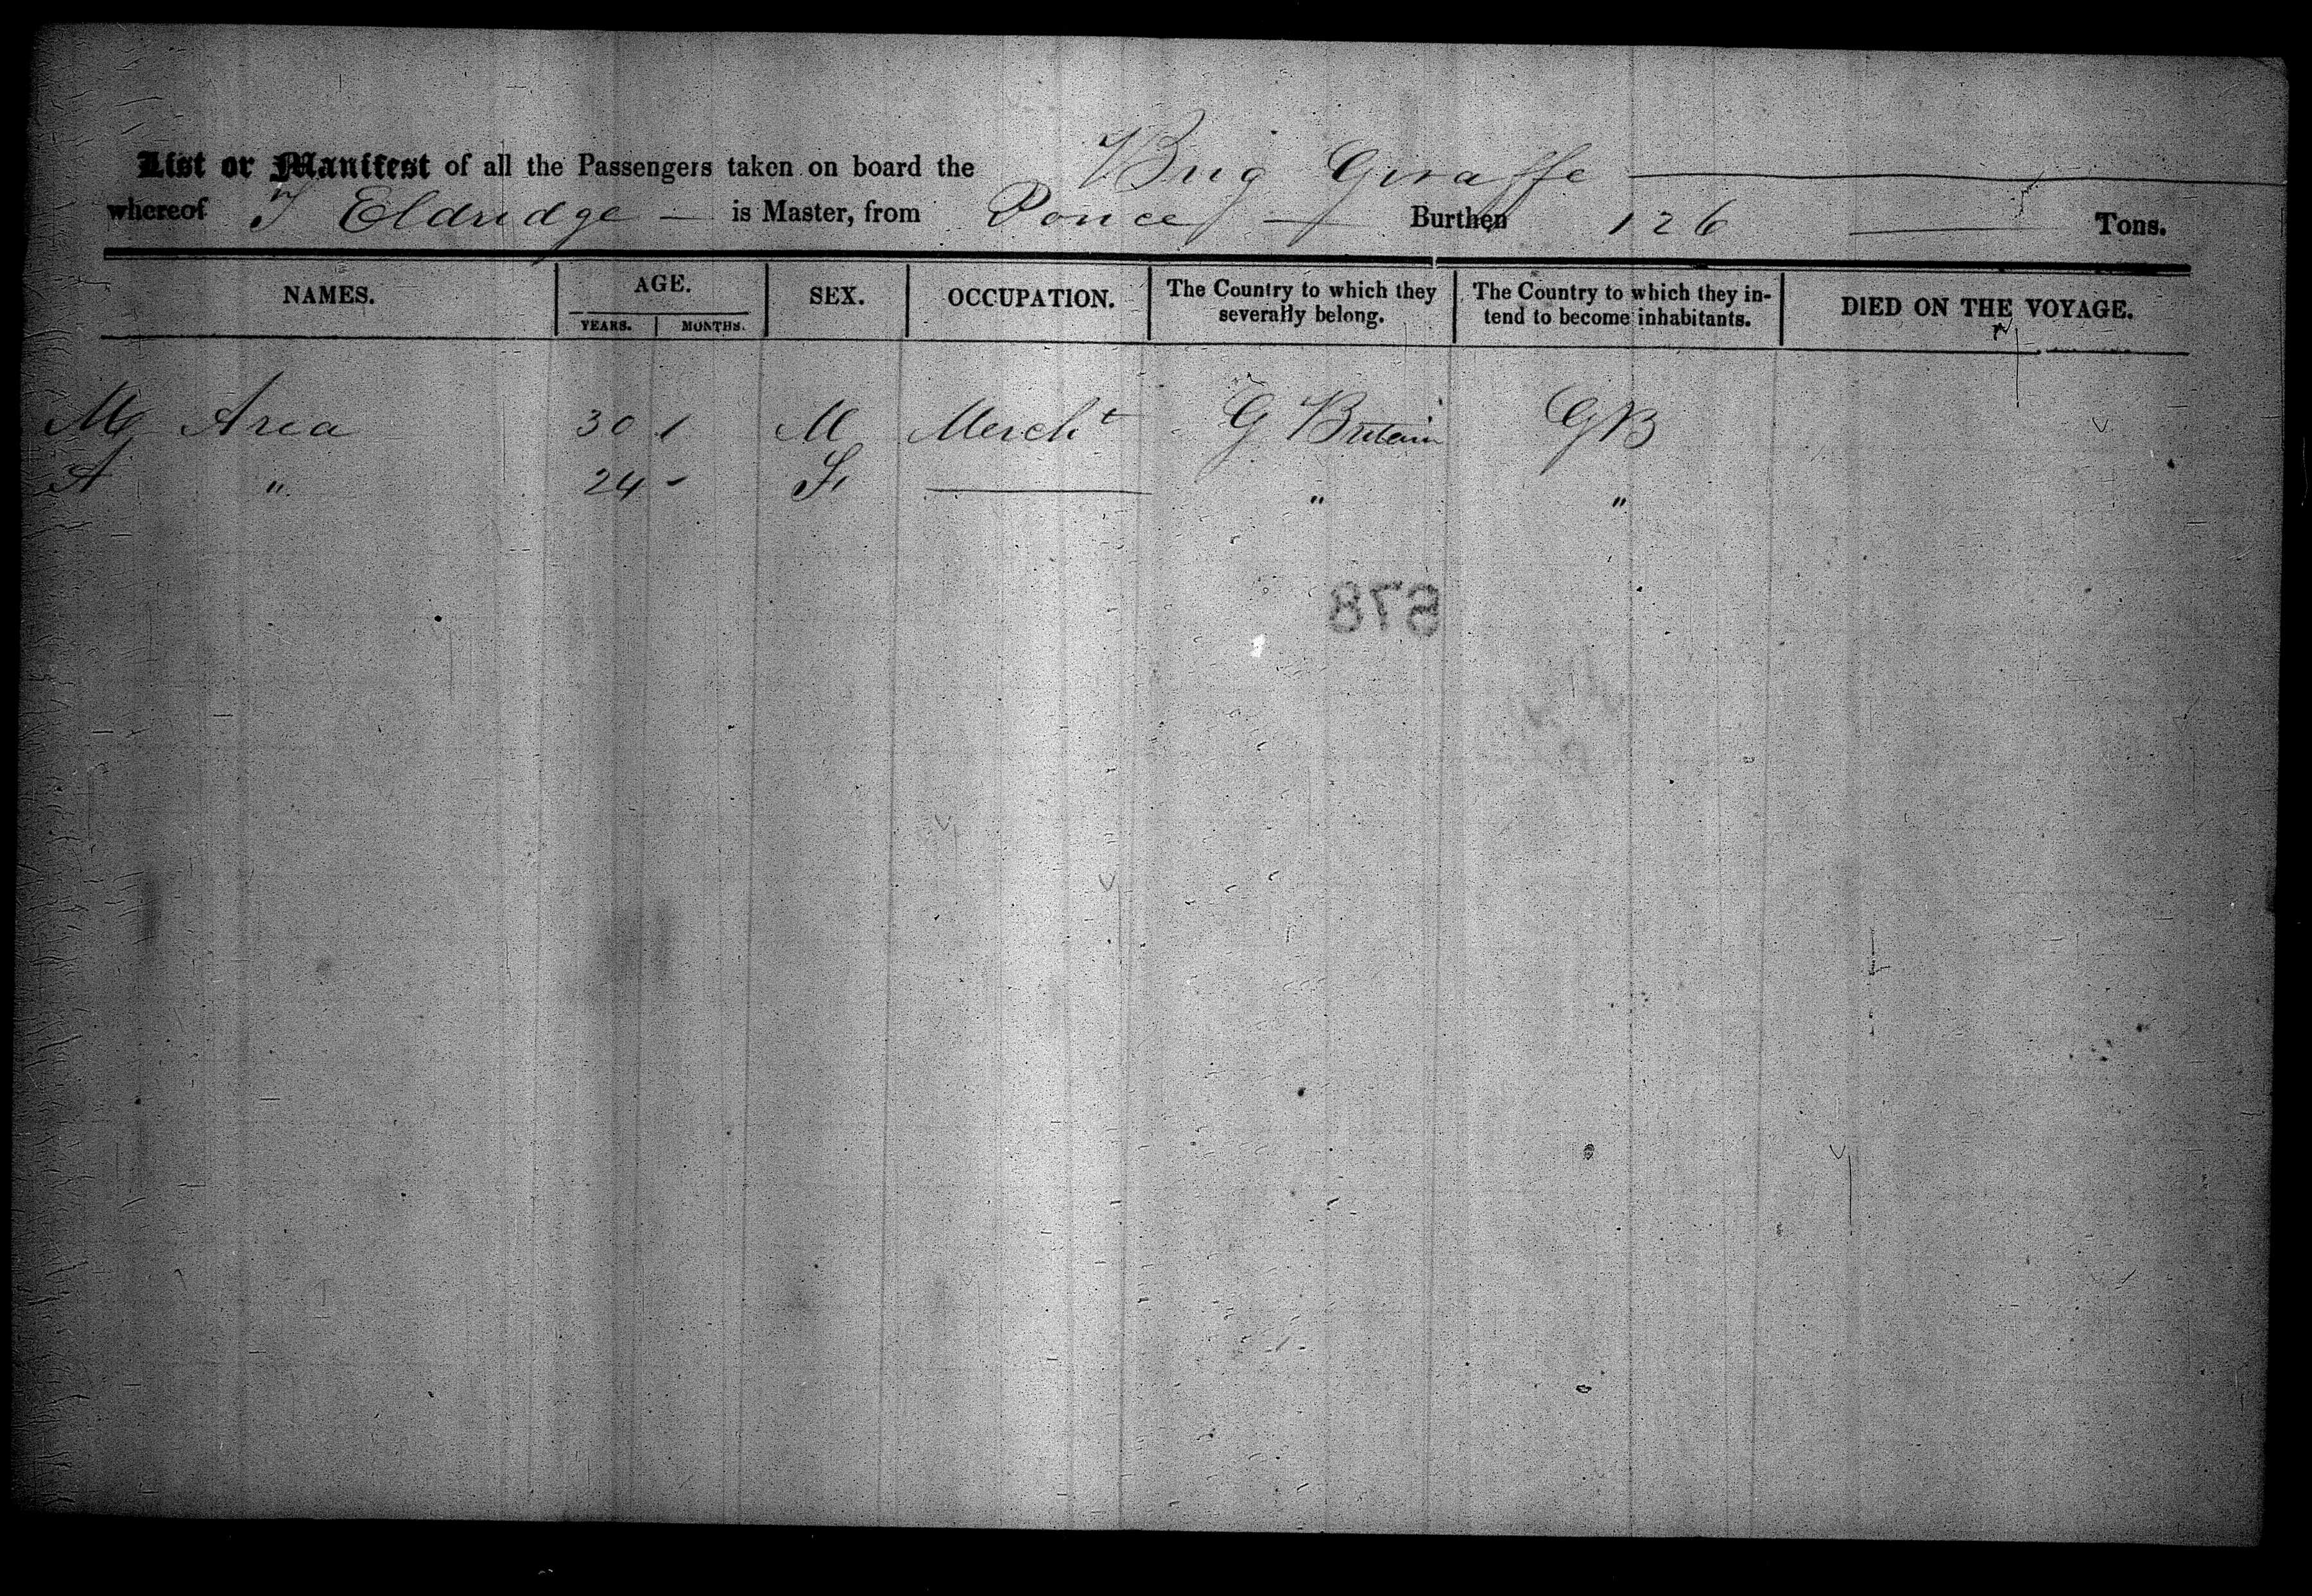 List or Manifest of all the Passengers taken on board the Brig Giraffe
whereof J Eldridge — is Master, from Ponce — Burthen 126 — Tons.
NAMES. AGE. SEX. OCCUPATION. The Country to which they severally belong. The Country to which they intend to become inhabitants. DIED ON THE VOYAGE.
YEARS. MONTHS.
M Area 30 M Mercht G Britain GB
A " 24 - F — " "
578